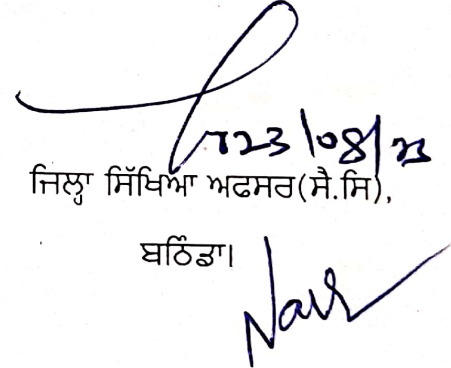 23/08/23
ਜਿਲ੍ਹਾ ਸਿੱਖਿਆ ਅਫਸਰ(ਸੈ.ਸਿ),
ਬਠਿੰਡਾ।